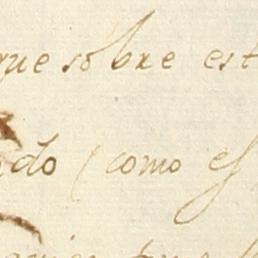 que sobre est
do (como es